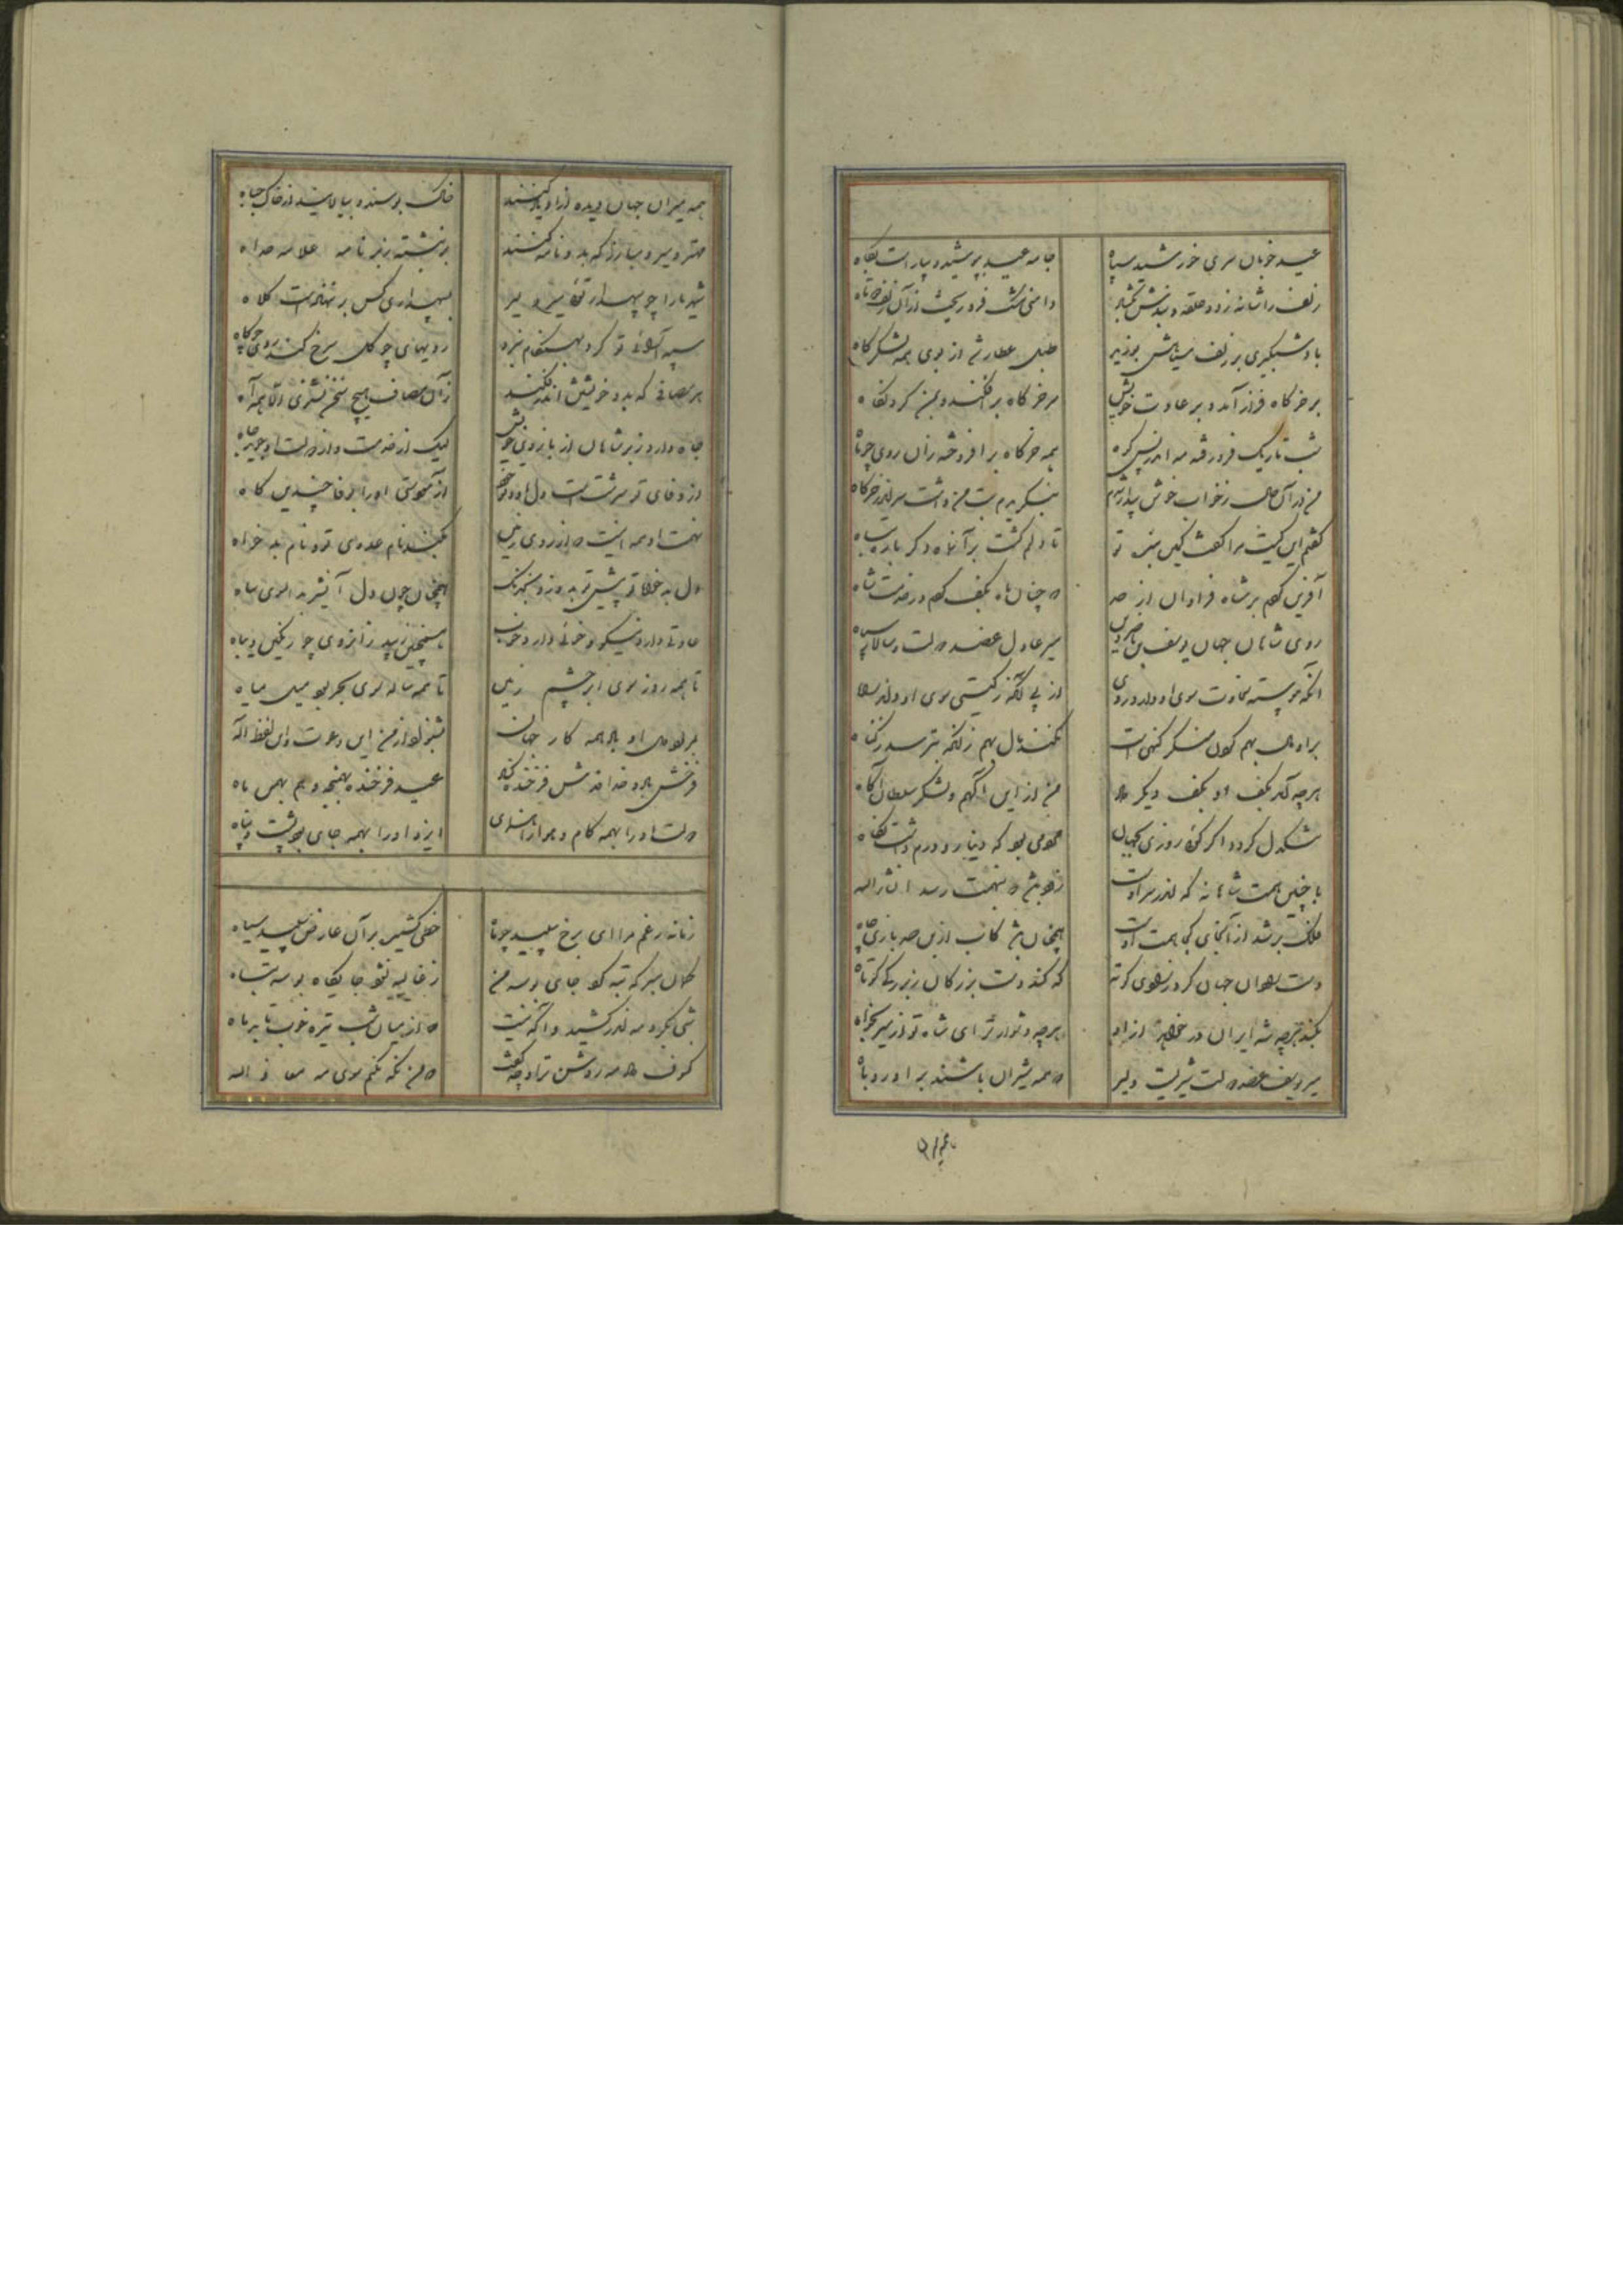 عید خوبان سرای خورشید سپاه
جامه عید بپوشید و بیاراست پگاه
زلف را شانه زد و حلقه و بندش بگشاد
دامنی مشک فرو ریخت از آن زلف دوتاه
باد شبگیری بر زلف سیاهش بوزید
طبل عطار شد از بوی همه لشکر گاه
بر خرگاه فراز آمد و بر عادت خویش
سر خرگاه بر افکند و بمن کرد نگاه
شب تاریک فرو رفته مه اندر پس کوه
همه خرگاه بر افروخته زان روی چو ماه
من در آن حال ز خواب خوش بیدار شدم
بنگریدم بت من داشت سر اندر خرگاه
گفتم این کیست مرا گفت
تا دلم گشت بر آن ماه دگر باره تباه
آفرین کردم بر شاه فراوان از
چنان ماه بکف کردم در خدمت شاه
روی شاهان جهان یوسف بن ناصر دین
میر عادل عضد دولت و سالار سپاه
آنکه پیوسته سخاوت سوی او دارد روی
از پی آنکه ز گیتی سوی او دارد راه
بر او مال بهم کردن منکر گنهی است
نکند مال بهم زانکه بترسد ز گناه
هر چه آمد بکف او بکف دیگر داد
من ازین آگهم و لشکر سلطان آگاه
تنگدل گردد اگر گوئی روزی بجهان
مردمی بود که دینار و درم داشت نگاه
با چنین همت شاهانه که اندر سر اوست
زود باشد که بنهمت رسد انشاء الله
فلک بر شد از آنجای که همت اوست
همچنان باشد کاب از بن صد بازی چاه
دست رادان جهان کرد ز رادی کوته
که کند دست بزرگان ز بزرگی کوتاه
بکند هر چه شه ایران در خواهد از او
هر چه دشوارتر ای شاه تو از میر بخواه
میر یوسف عضد دولت شیریست دلیر
همه شیران باشند بر او روباه
همه میران جهان دیده از او یاد کنند
خاک بوسند و بیالایند از خاک جباه
مهتر و میر و مبارز که بدو نامه کنند
بر نبشته ز بر نامه علامه فداه
شهریارا چو سپهدار توئی میر و امیر
بسپهداری کس بر ننهاده است کلاه
سپه آرائی تو کرد بهنگام نبرد
رویهای چو گل سرخ کند روی چو کاه
هر مصافی که بدو خویشتن اندر فکند
زان مصاف هیچ سخن نشنوی الا همه آه
جاه دارد ز بر شاهان از بازوی خویش
لیک از خدمت و از دولت او جوید جاه
از وفای تو سرشته است دل او
از نکودوستی او را بوفا چندین گاه
نهمت او همه آنست که از روی زمین
بکند نام عدوی تو و نام بد خواه
دل بد خواه تو پیش تو بدوزد بخدنگ
همچنان چون دل آن شیر بر اسوی ماه
عادتی دارد نیکو و خوئی دارد خوب
این چنین زیبد زانروی چو رنگین دیباه
تا همه روز سوی ابر چشم زمین
تا همه ساله سوی بحر بود میل میاه
بر مراد دل او باد همه کار جهان
بشنواد از من این دعوت و این لفظ اله
فرخش باد و خداوندش فرخنده کناد
عید فرخنده بهمنجنه و هم بهمن ماه
دولت او را بهمه کام و هوا راهنمای
ایزد او را بهمه جای پشت و پناه
زمانه رغم مرا ای برخ سپید چو ماه
خطی کشید بر آن عارض سپید سیاه
گمان مبر که تبه کرد جای بوسه من
ز غالیه نشود جایگاه بوسه تباه
شبی بگرد مه اندر کشید و آگه نیست
که از میان شب تیره خوبتر باشد ماه
کسوف داد مه روشن ترا و چه گفت
که من نگه نکنم سوی مه معاذ الله